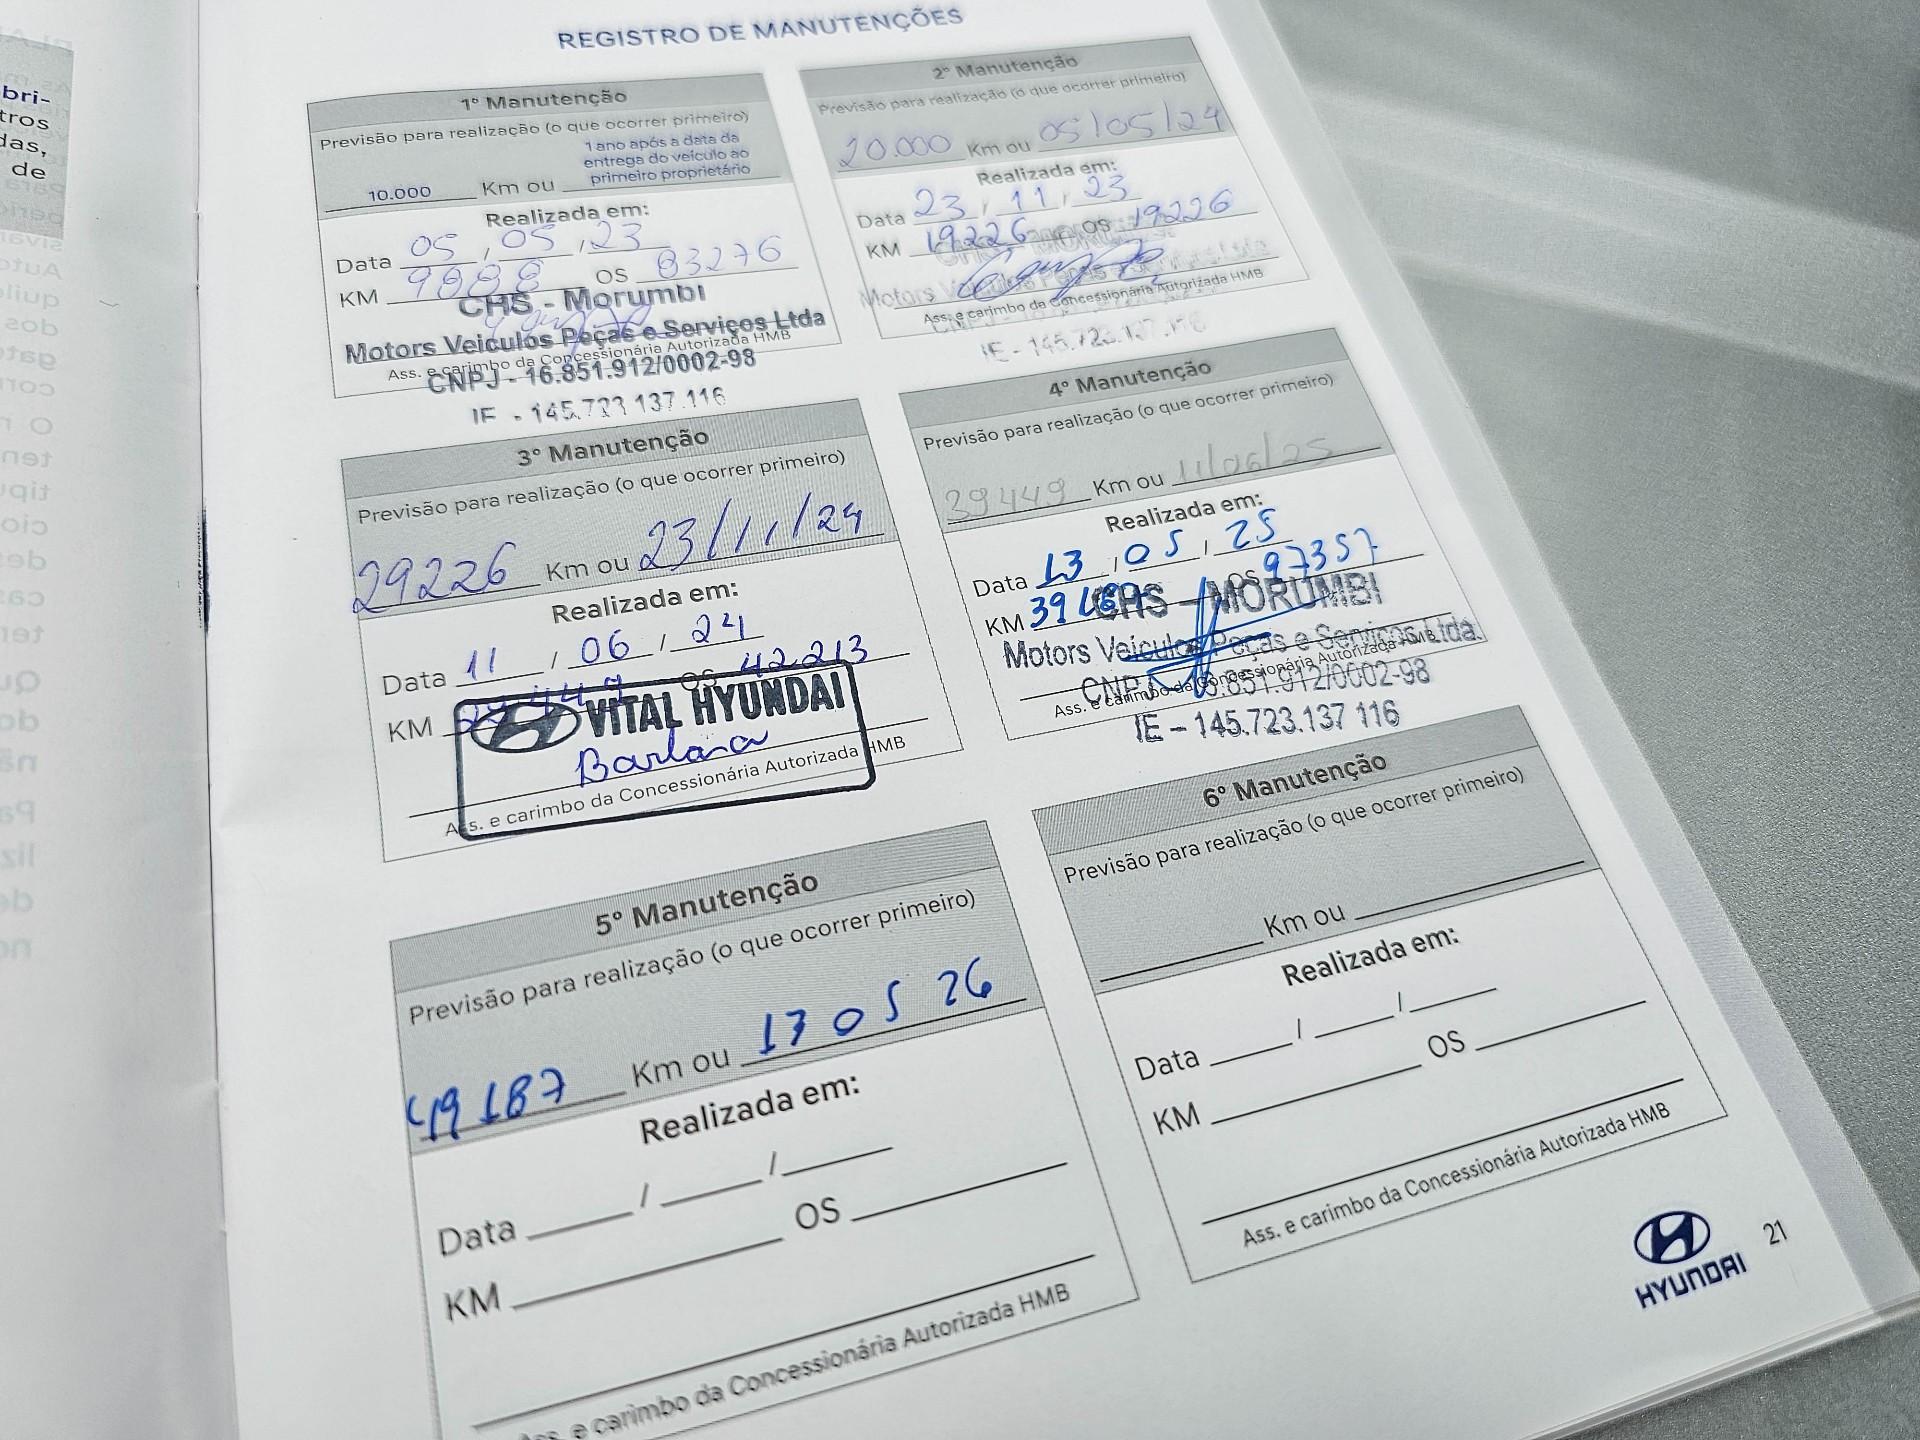 bri-
tros
das,
de
REGISTRO DE MANUTENÇÕES
1º Manutenção
Previsão para realização (o que ocorrer primeiro)
1 ano após a data da
entrega do veículo ao
10.000 Km ou primeiro proprietário
Realizada em:
Data 05 / 05 / 23
KM 9888 OS 83276
CHS - Morumbi
Motors Veiculos Peças e Serviços Ltda
Ass. e carimbo da Concessionária Autorizada HMB
CNPJ - 16.851.912/0002-98
IE - 145.723 137.116
2º Manutenção
Previsão para realização (o que ocorrer primeiro)
20.000 Km ou 05/05/24
Realizada em:
Data 23 / 11 / 23
KM 19226 OS 19226
Motors Veiculos Peças e Serviços Ltda
Ass. e carimbo da Concessionária Autorizada HMB
IE - 145.723.137.116
3º Manutenção
Previsão para realização (o que ocorrer primeiro)
29226 Km ou 23/11/24
Realizada em:
Data 11 / 06 / 24
KM OS 42213
VITAL HYUNDAI
Barbara
Ass. e carimbo da Concessionária Autorizada HMB
4º Manutenção
Previsão para realização (o que ocorrer primeiro)
39449 Km ou 11/06/25
Realizada em:
Data 13 / 05 / 25
KM 39187 OS 97357
CHS - MORUMBI
Motors Veiculos Peças e Serviços Ltda.
Ass. e carimbo da Concessionária Autorizada HMB
CNPJ - 16.851.912/0002-98
IE - 145.723.137 116
5º Manutenção
Previsão para realização (o que ocorrer primeiro)
49187 Km ou 13 05 26
Realizada em:
Data / /
KM OS
Ass. e carimbo da Concessionária Autorizada HMB
6º Manutenção
Previsão para realização (o que ocorrer primeiro)
Km ou
Realizada em:
Data / /
KM OS
Ass. e carimbo da Concessionária Autorizada HMB
HYUNDAI
21